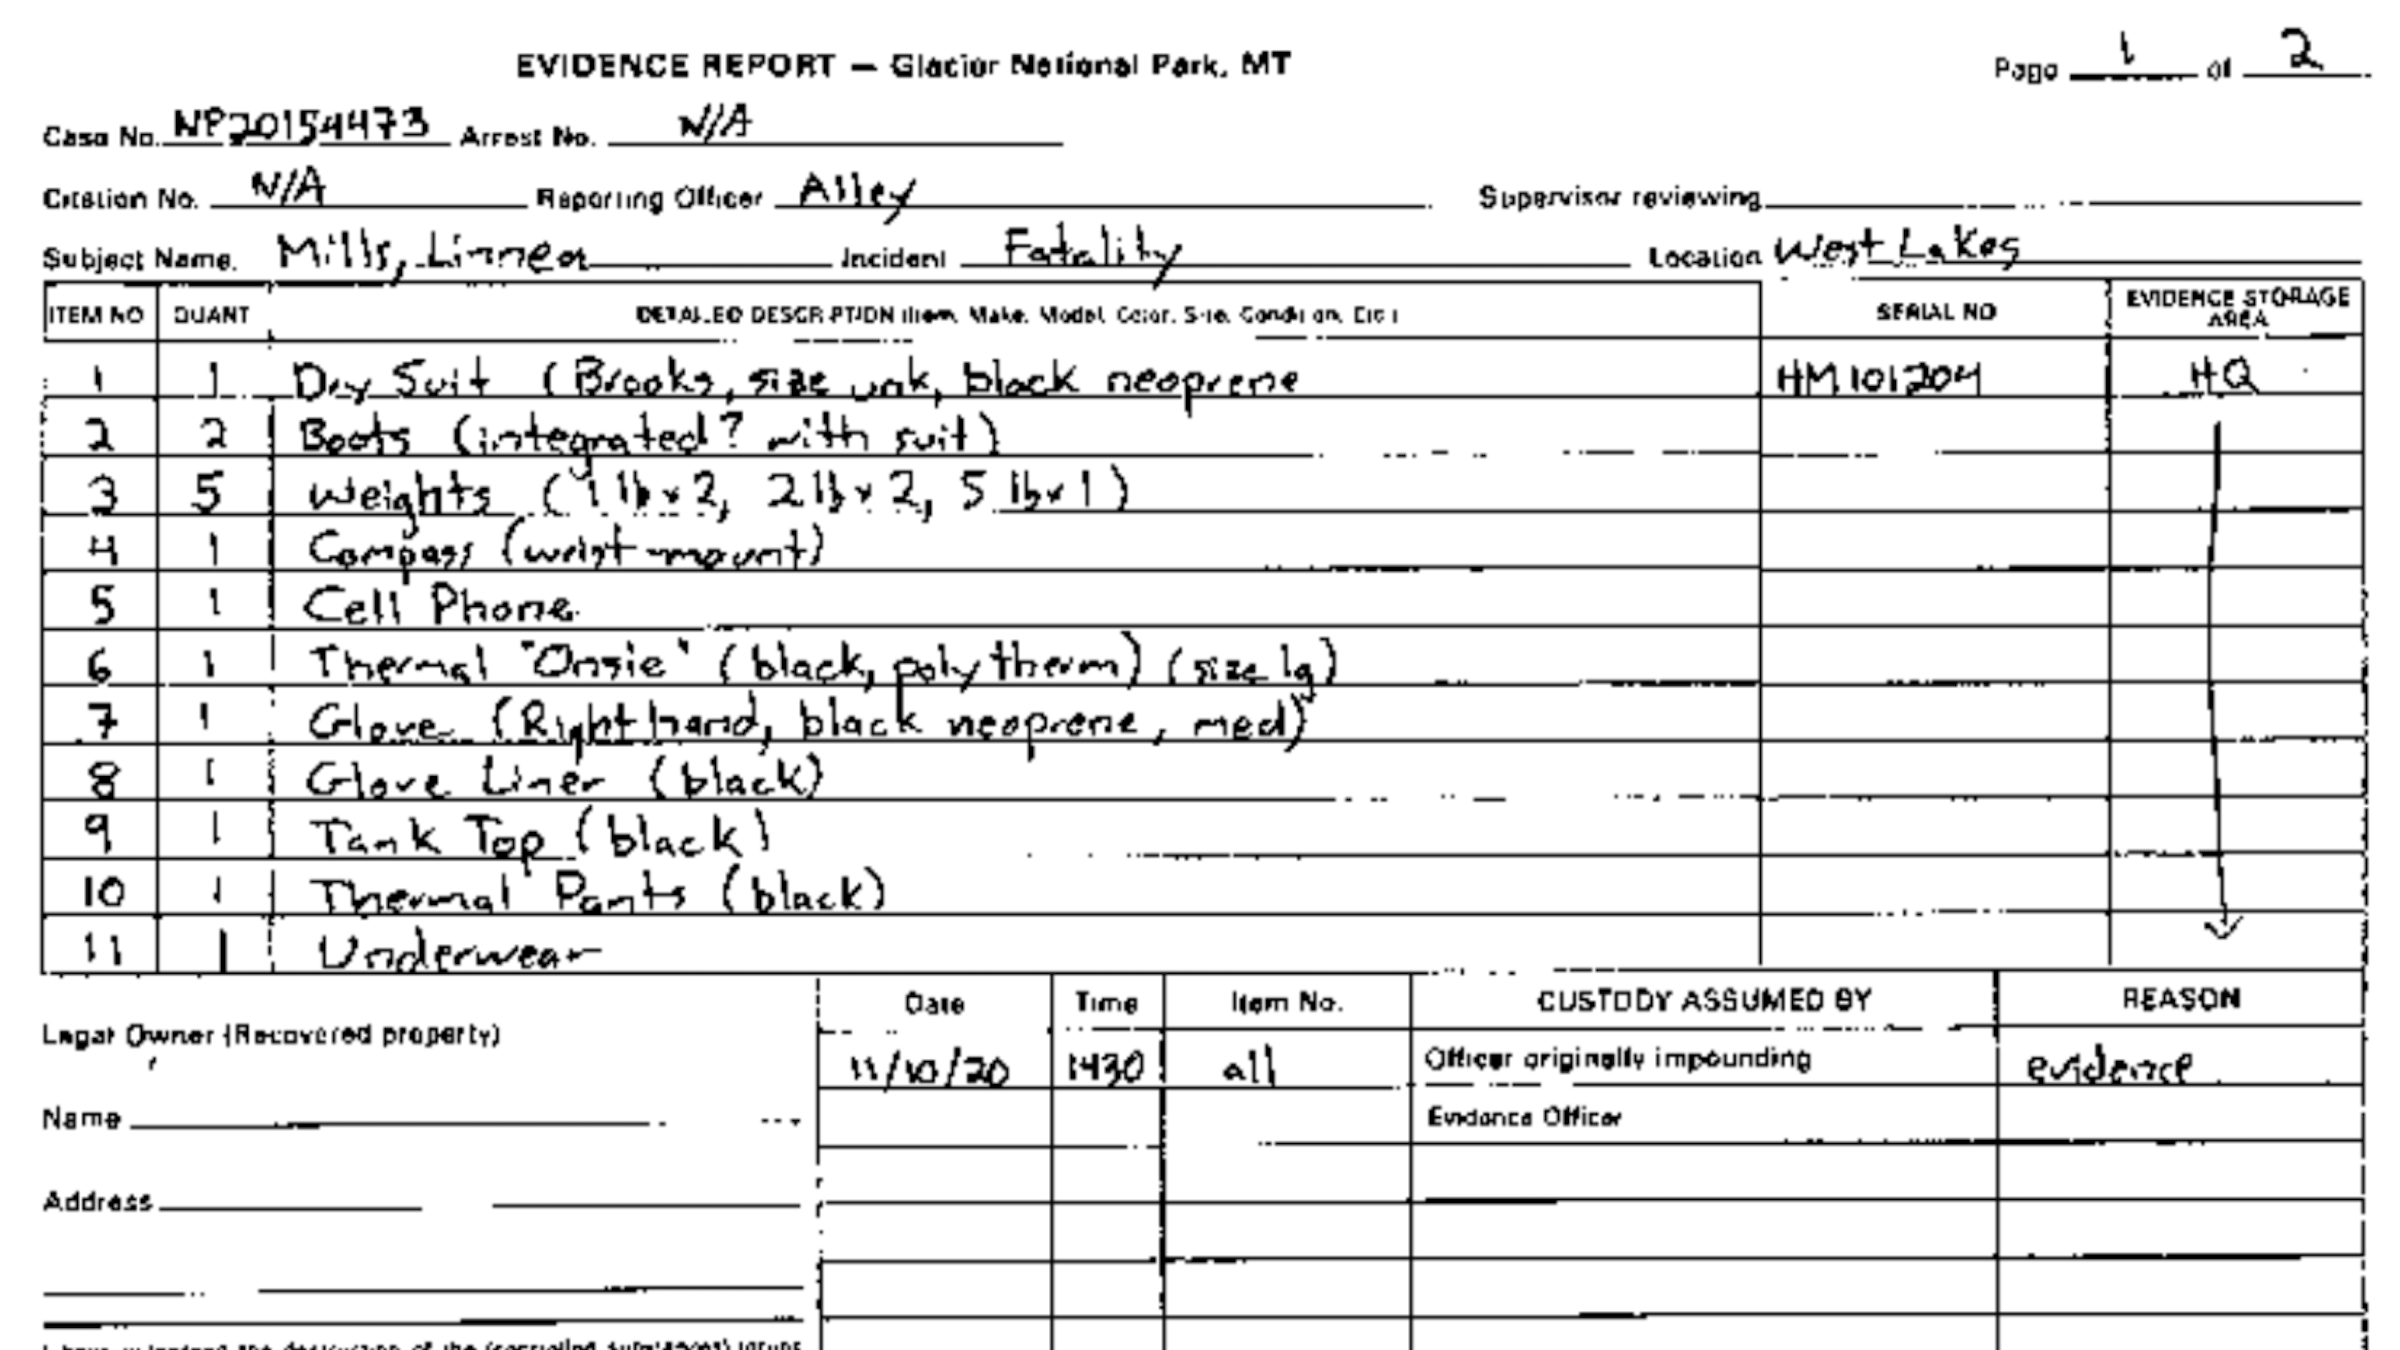 EVIDENCE REPORT — Glacier National Park, MT
Page 1 of 2
Case No. NP20154473 Arrest No. N/A
Citation No. N/A Reporting Officer Alley Supervisor reviewing
Subject Name. Mills, Linnea Incident Fatality Location West Lakes
ITEM NO QUANT DETAILED DESCRIPTION (Item, Make, Model, Color, Size, Condition, Etc.) SERIAL NO EVIDENCE STORAGE AREA
1 1 Dry Suit (Brooks, size unk, black neoprene HM101204 HQ
2 2 Boots (integrated? with suit)
3 5 Weights (1 lb x 2, 2 lb x 2, 5 lb x 1)
4 1 Compass (wrist-mount)
5 1 Cell Phone
6 1 Thermal "Onsie" (black, polytherm) (size lg)
7 1 Glove (Right hand, black neoprene, med)
8 1 Glove Liner (black)
9 1 Tank Top (black)
10 1 Thermal Pants (black)
11 1 Underwear
Date Time Item No. CUSTODY ASSUMED BY REASON
Legal Owner (Recovered property)
11/10/20 1430 all Officer originally impounding evidence
Name
Evidence Officer
Address